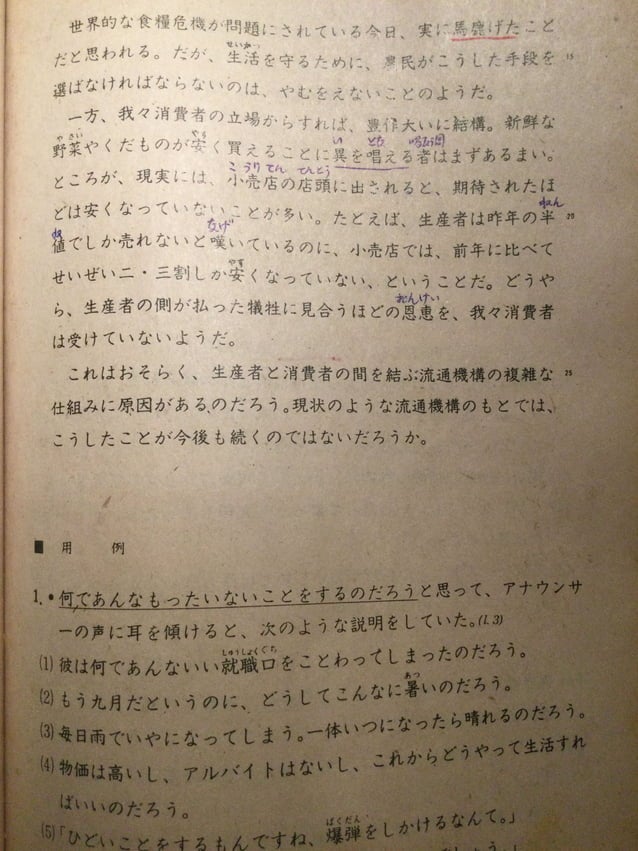 世界的な食糧危機が問題にされている今日、実に馬鹿げたこと
だと思われる。だが、生活を守るために、農民がこうした手段を 15
せいかつ
選ばなければならないのは、やむをえないことのようだ。
一方、我々消費者の立場からすれば、豊作大いに結構。新鮮な
野菜やくだものが安く買えることに異を唱える者はまずあるまい。
やさい やす い とな
ところが、現実には、小売店の店頭に出されると、期待されたほ
こうりてん てんとう
どは安くなっていないことが多い。たとえば、生産者は昨年の半 20
はん
値でしか売れないと嘆いているのに、小売店では、前年に比べて
ね なげ
せいぜい二・三割しか安くなっていない、ということだ。どうや
やす
ら、生産者の側が払った犠牲に見合うほどの恩恵を、我々消費者
おんけい
は受けていないようだ。
これはおそらく、生産者と消費者の間を結ぶ流通機構の複雑な 25
仕組みに原因があるのだろう。現状のような流通機構のもとでは、
こうしたことが今後も続くのではないだろうか。
■ 用 例
1.•何であんなもったいないことをするのだろうと思って、アナウンサ
ーの声に耳を傾けると、次のような説明をしていた。(l.3)
(1) 彼は何であんないい就職口をことわってしまったのだろう。
しゅうしょくぐち
(2) もう九月だというのに、どうしてこんなに暑いのだろう。
あつ
(3) 毎日雨でいやになってしまう。一体いつになったら晴れるのだろう。
(4) 物価は高いし、アルバイトはないし、これからどうやって生活すれ
ばいいのだろう。
(5)「ひどいことをするもんですね、爆弾をしかけるなんて。」
ばくだん